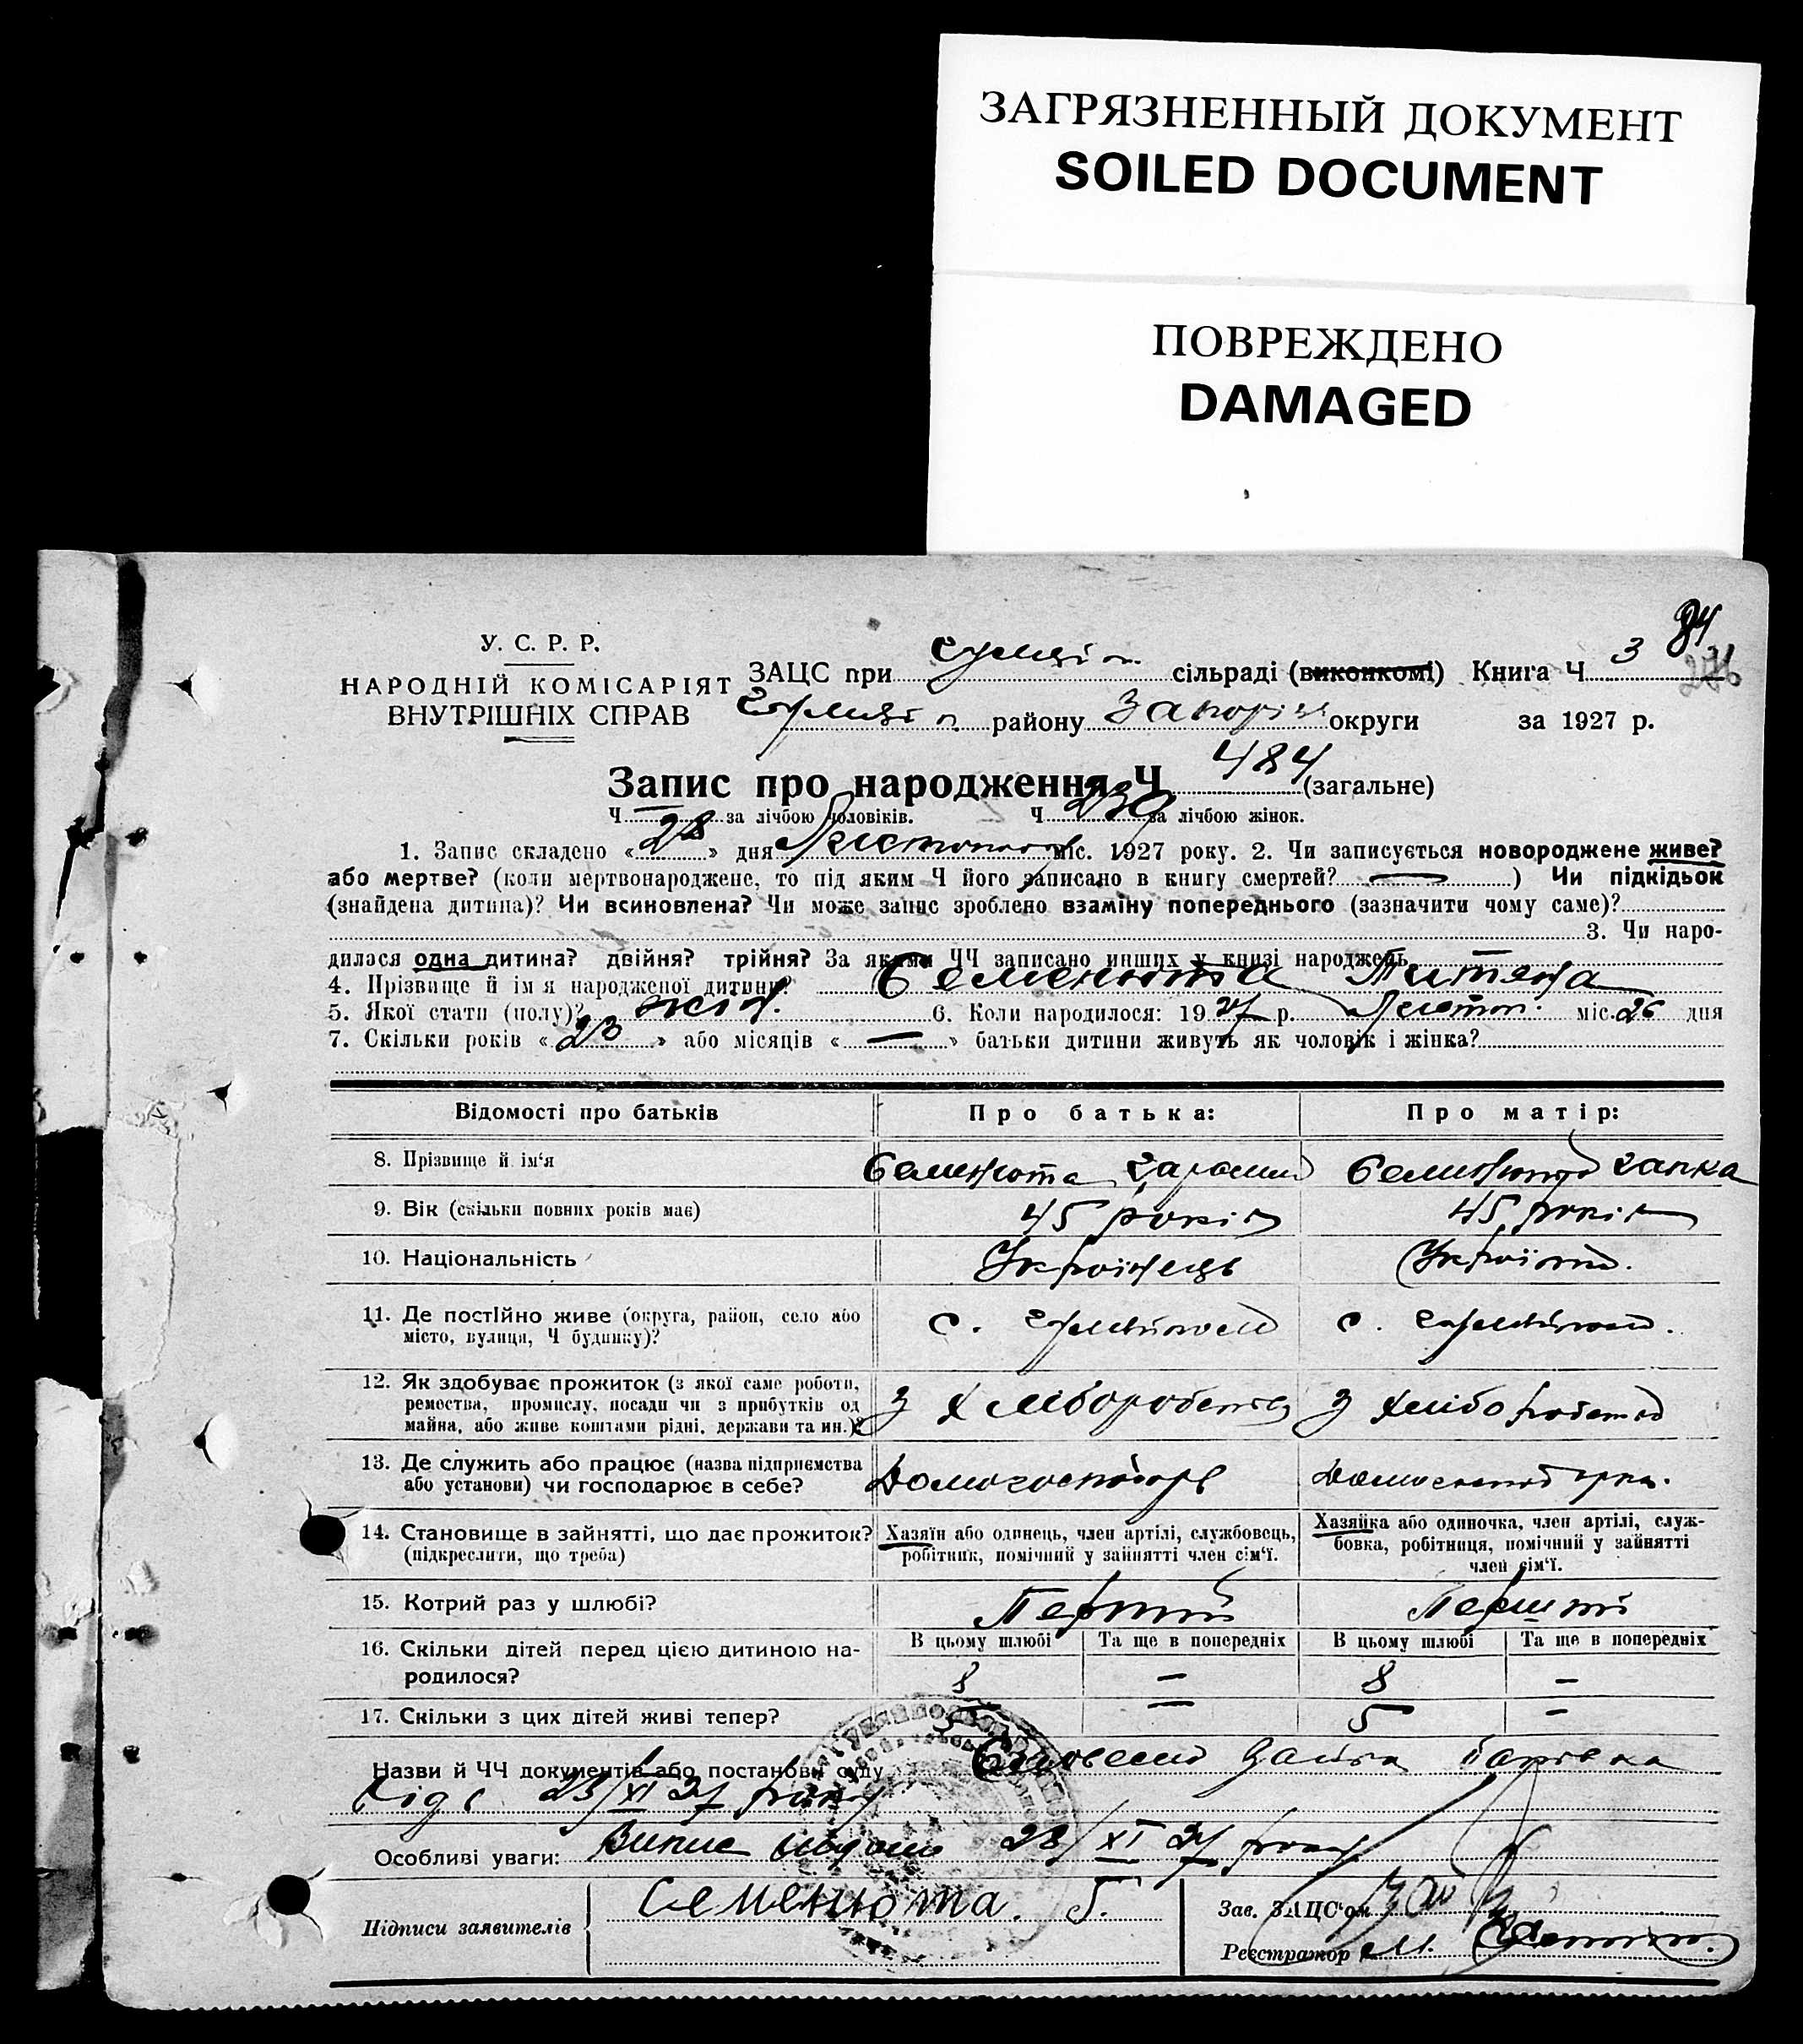 ЗАГРЯЗНЕННЫЙ ДОКУМЕНТ
SOILED DOCUMENT
ПОВРЕЖДЕНО
DAMAGED
84
У. С. Р. Р.
НАРОДНІЙ КОМІСАРІЯТ
ВНУТРІШНІХ СПРАВ
ЗАЦС при сільраді (виконкомі) Книга Ч 3
району Запоріз округи за 1927 р.
Запис про народження Ч 484 (загальне)
Ч — за лічбою чоловіків. Ч 230 за лічбою жінок.
1. Запис складено «28» дня Листопада міс. 1927 року. 2. Чи записується новороджене живе?
або мертве? (коли мертвонароджене, то під яким Ч його записано в книгу смертей? — ) Чи підкідьок
(знайдена дитина)? Чи всиновлена? Чи може запис зроблено взаміну попереднього (зазначити чому саме)?
3. Чи наро-
дилася одна дитина? двійня? трійня? За якими ЧЧ записано инших у книзі народжень
4. Прізвище й ім'я народженої дитини? Семенюта Титяна
5. Якої стати (полу)? жін. 6. Коли народилося: 1927 р. Листоп. міс. 26 дня
7. Скільки років «23» або місяців «—» батьки дитини живуть як чоловік і жінка?
Відомості про батьків Про батька: Про матір:
8. Прізвище й ім'я Семенюта Семенюта Ганка
9. Вік (скільки повних років має) 45 років 45 років
10. Національність Українець Українка.
11. Де постійно живе (округа, район, село або
місто, вулиця, Ч будинку)? с. с.
12. Як здобуває прожиток (з якої саме роботи,
ремества, промислу, посади чи з прибутків од
майна, або живе коштами рідні, держави та ин.)? З хліборобства З хліборобства
13. Де служить або працює (назва підприємства
або установи) чи господарює в себе? Домогосподарь
14. Становище в зайнятті, що дає прожиток?
(підкреслити, що треба)
Хазяїн або одинець, член артілі, службовець,
робітник, помічний у зайнятті член сім'ї.
Хазяйка або одиночка, член артілі, служ-
бовка, робітниця, помічний у зайнятті
член сім'ї.
15. Котрий раз у шлюбі? Перший Перший
16. Скільки дітей перед цією дитиною на-
родилося?
В цьому шлюбі Та ще в попередніх В цьому шлюбі Та ще в попередніх
8 — 8 —
17. Скільки з цих дітей живі тепер? 5 — 5 —
Назви й ЧЧ документів або постанови суду
від 23/XI 27 року
Особливі уваги: Випис видано 28/XI 27 року
Підписи заявителів Семенюта. Г.
Зав. ЗАЦС'ом
Реєстратор М.